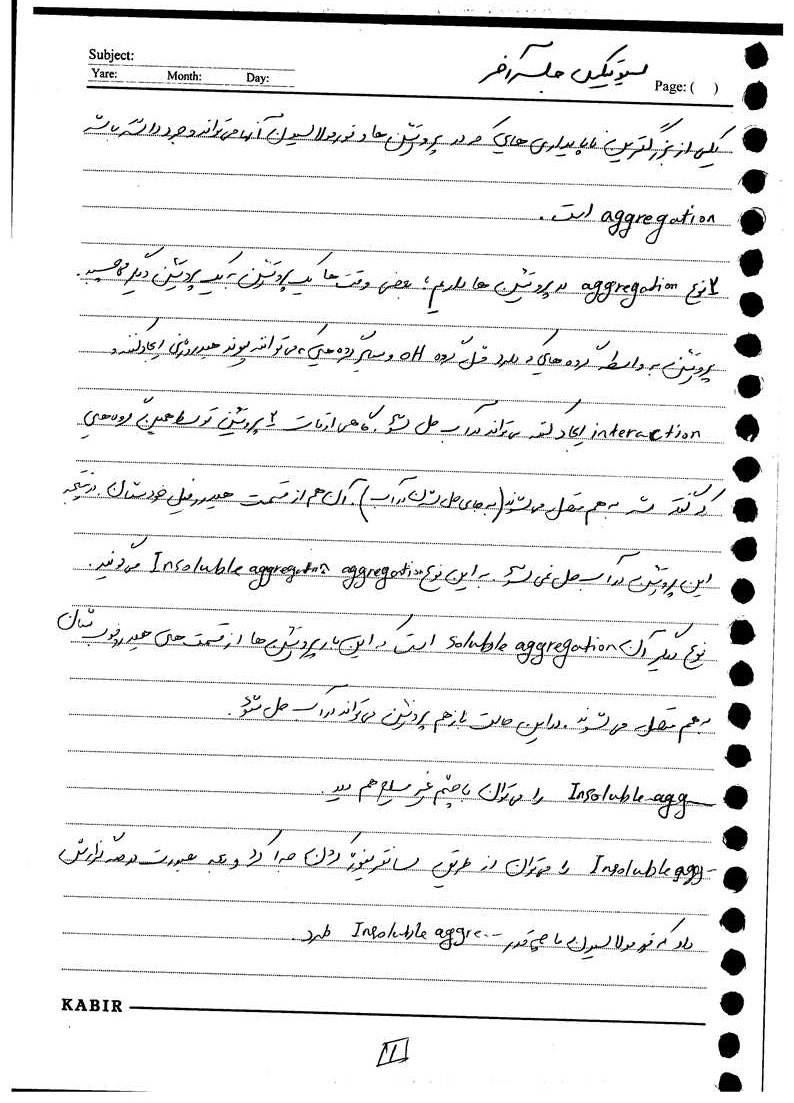 Subject:
Yare: Month: Day:
جلسه آخر
Page: ( )
یکی از بزرگترین ناپایداری هایی که در پروتئین ها و فورمولاسیون آنها می تواند وجود داشته باشد
aggregation است.
۲ نوع aggregation در پروتئین ها داریم؛ بعضی وقت ها یک پروتئین به یک پروتئین دیگر می چسبد.
پروتئین به واسطه گروه هایی که دارد مثل گروه OH و سایر گروه هایی که می توانند پیوند هیدروژنی ایجاد کنند و
interaction ایجاد کنند می تواند در آب حل شود. گاهی اوقات ۲ پروتئین توسط همین گروه هایی
که گفته شد به هم متصل می شوند (به جای حل شدن در آب). آن هم از قسمت هیدروفیل خودشان. در نتیجه
این پروتئین در آب حل نمی شود. به این نوع aggregation Insoluble aggregation می گویند.
نوع دیگر آن soluble aggregation است که در این بار پروتئین ها از قسمت های هیدروفوب شان
به هم متصل می شوند. در این حالت باز هم پروتئین می تواند در آب حل شود.
Insoluble agg را می توان با چشم غیر مسلح هم دید.
Insoluble agg را می توان از طریق سانتریفیوژ کردن جدا کرد و به صورت درصد گزارش
داد که فورمولاسیون ما چقدر Insoluble aggre... دارد.
KABIR
11